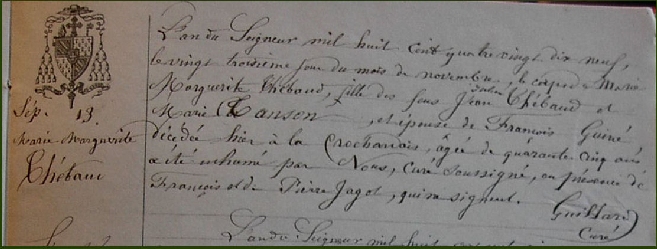 Sép. 13.
Marie-Marguerite
Thébaud
L'an du Seigneur mil huit cent quatre vingt dix neuf,
le vingt troisième jour du mois de novembre, le corps de Marie
Marguerite Thébaud, fille des feus Jean Julien Thébaud et
Marie Chanson, et épouse de François Guiné
décédée hier à la, âgée de quarante cinq ans
a été inhumé par Nous, Curé soussigné, en présence de
François et de Pierre Jagot, qui ne signent.
Guillard
Curé
L'an du Seigneur mil huit cent